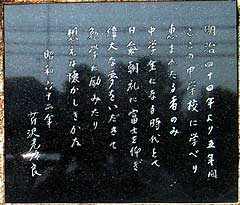 明治四十四年より五年間
ここの中学校に学べり
恵まれたる者のみ
中学生になる時代とて
日毎朝礼に富士を仰ぎ
偉大な夢をいだきて
勉学に励みたり
想えば懐かしきかな
昭和六十二年
芹沢光治良